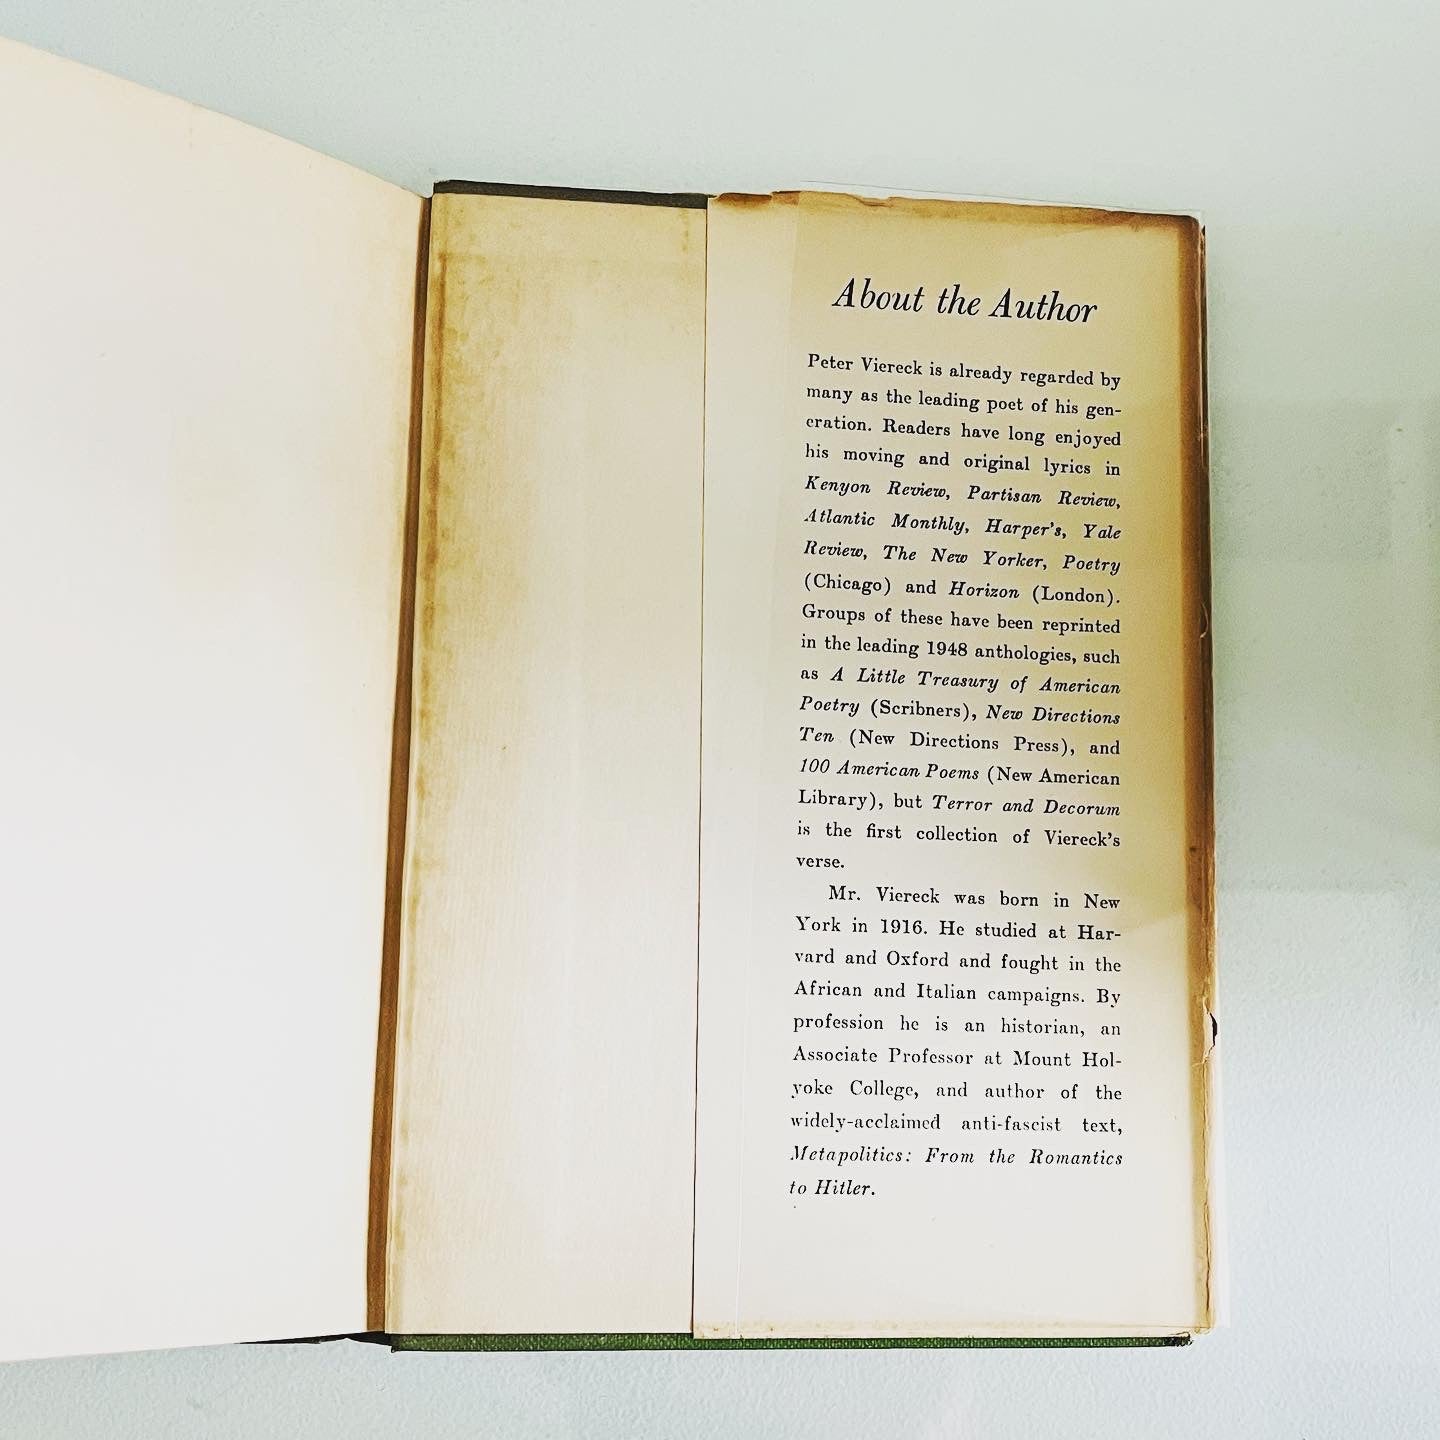 About the Author
Peter Viereck is already regarded by
many as the leading poet of his gen-
eration. Readers have long enjoyed
his moving and original lyrics in
Kenyon Review, Partisan Review,
Atlantic Monthly, Harper's, Yale
Review, The New Yorker, Poetry
(Chicago) and Horizon (London).
Groups of these have been reprinted
in the leading 1948 anthologies, such
as A Little Treasury of American
Poetry (Scribners), New Directions
Ten (New Directions Press), and
100 American Poems (New American
Library), but Terror and Decorum
is the first collection of Viereck's
verse.
Mr. Viereck was born in New
York in 1916. He studied at Har-
vard and Oxford and fought in the
African and Italian campaigns. By
profession he is an historian, an
Associate Professor at Mount Hol-
yoke College, and author of the
widely-acclaimed anti-fascist text,
Metapolitics: From the Romantics
to Hitler.